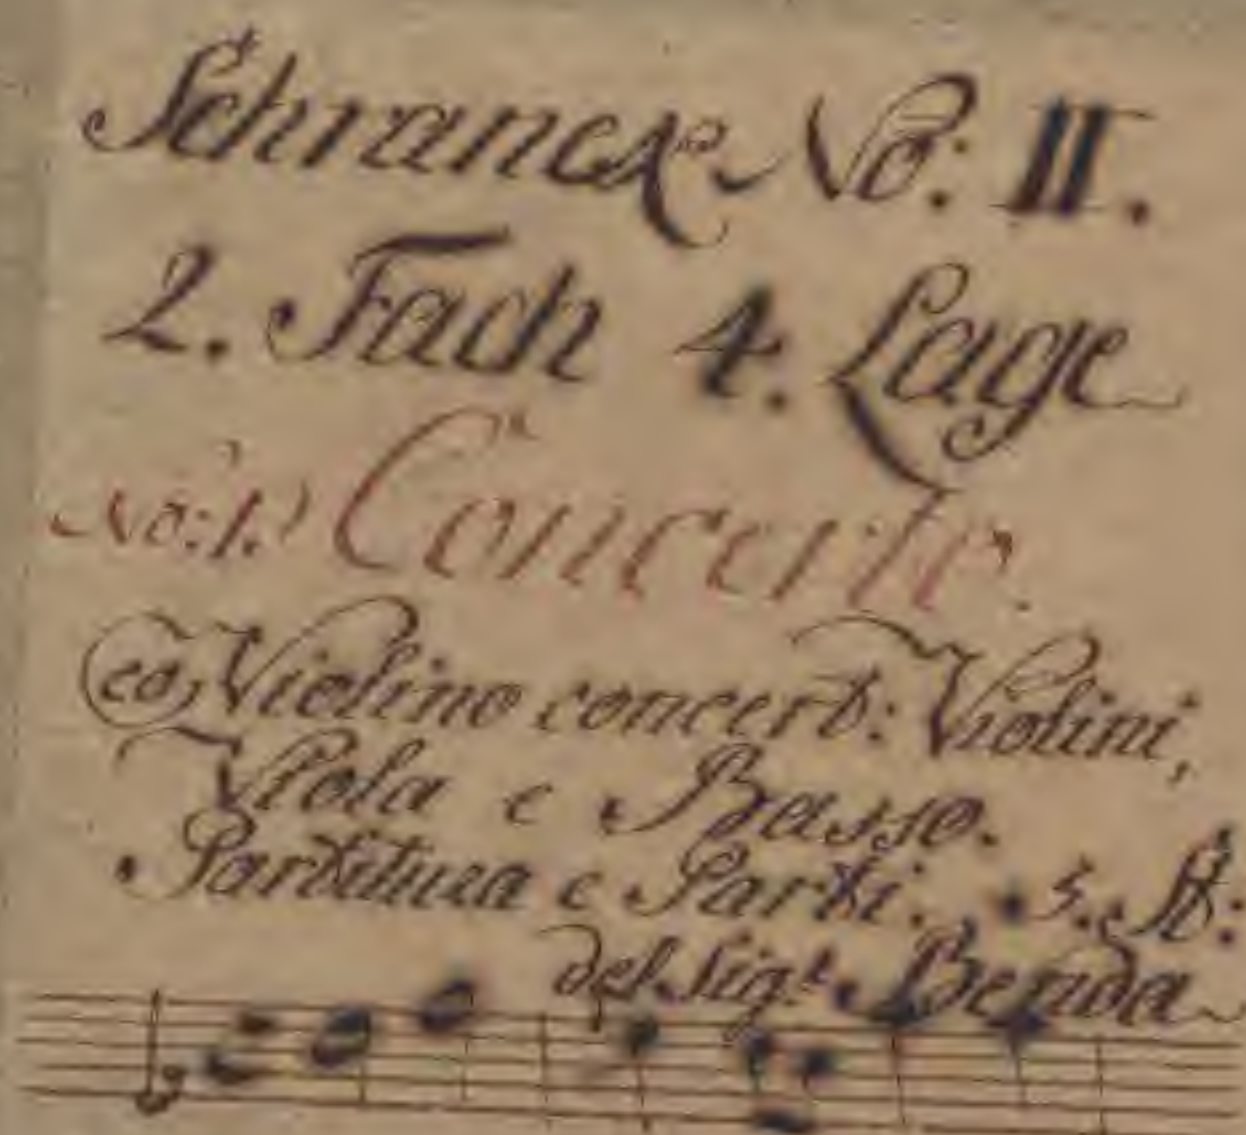 Schranck No: II.
2. Fach 4. Lage
No: 1.) Concerte.
co Violino concert: Violini,
Viola e Basso.
Partitura e Parti. 5. St:
del Sigr. Benda